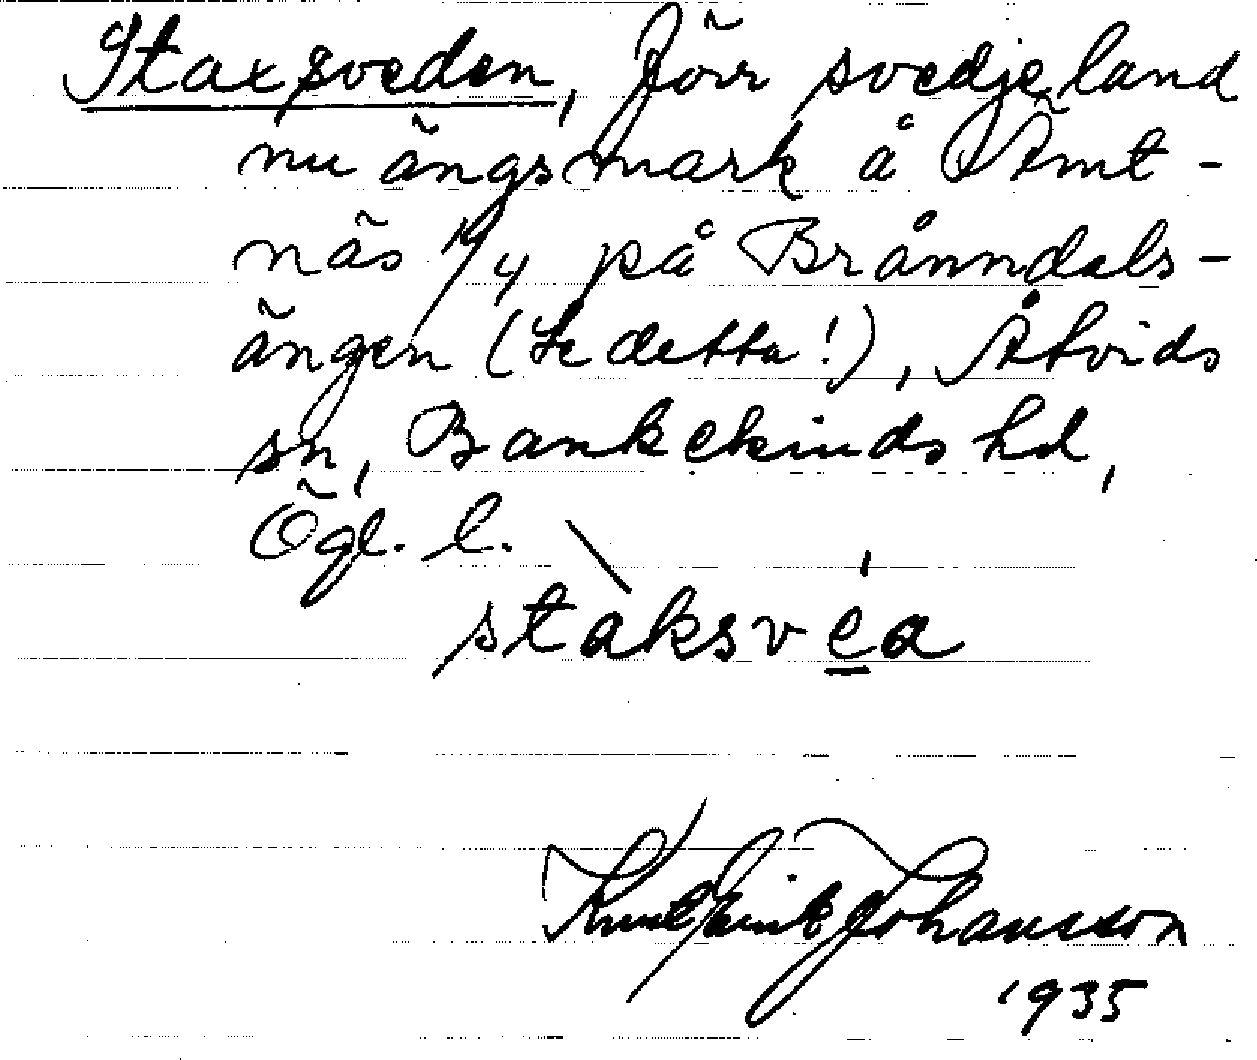 Staxsveden, förr svedjeland
nu ängsmark å Ämt-
näs 1/4 på Brånndals-
ängen (se detta!), Åtvids
sn, Bankekinds hd,
Ögl. l.
stàksvéa
Johansson
1935